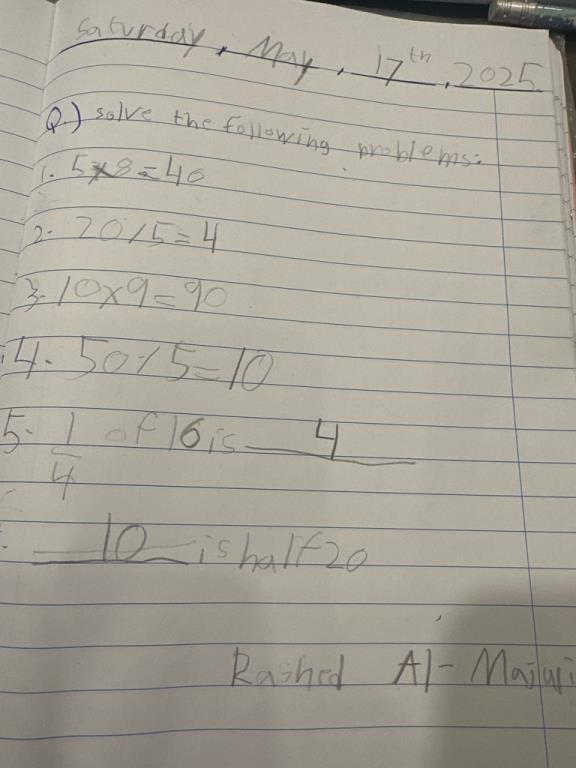 Saturday, May, 17th, 2025
Q.) solve the following problems:
1. 5x8=40
2. 20/5=4
3. 10x9=90
4. 50/5=10
5. 1/4 of 16 is 4
10 is half 20
Rashed Al-